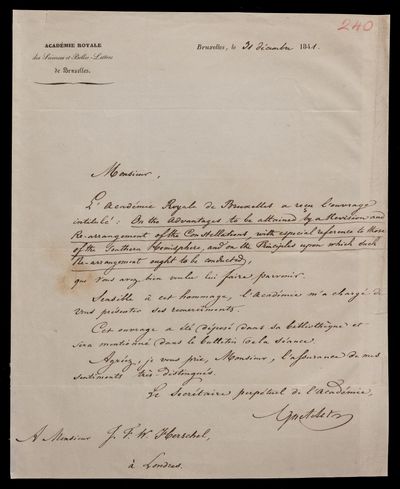 240
ACADÉMIE ROYALE
des Sciences et Belles-Lettres
de Bruxelles.
Bruxelles, le 31 décembre 1841.
Monsieur,
L'Académie Royale de Bruxelles a reçu l'ouvrage
intitulé: On the advantages to be attained by a Revision and
Re-arrangement of the Constellations, with especial reference to those
of the Southern Hemisphere, and on the Principles upon which such
Re-arrangement ought to be conducted,
que vous avez bien voulu lui faire parvenir.
Sensible à cet hommage, l'Académie m'a chargé de
vous présenter ses remerciments.
Cet ouvrage a été déposé dans sa bibliothèque et
sera mentionné dans le bulletin de la séance.
Agréez, je vous prie, Monsieur, l'assurance de mes
sentiments très distingués.
Le Secrétaire perpétuel de l'Académie,
Quetelet
A Monsieur J. F. W. Herschel,
à Londres.